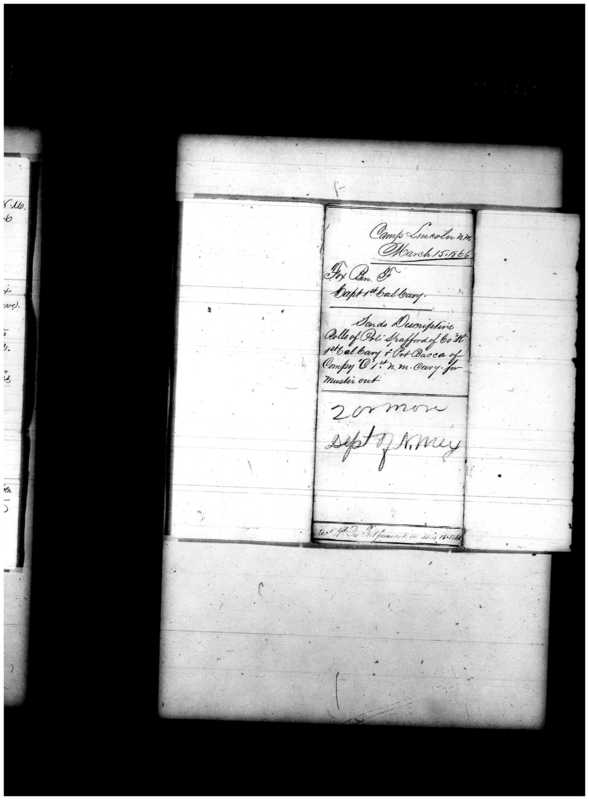 Camp Lincoln N.M.
March 15. 1866
Fox Ben. F
Capt 1st Cal Cavy.
Sends Descriptive
Rolls of Pvt Spafford of Co "H"
1st Cal Cavy & Pvt Bacca of
Compy "C" 1st N.M. Cavy. for
Muster out
2 or more
Dept of N. Mex